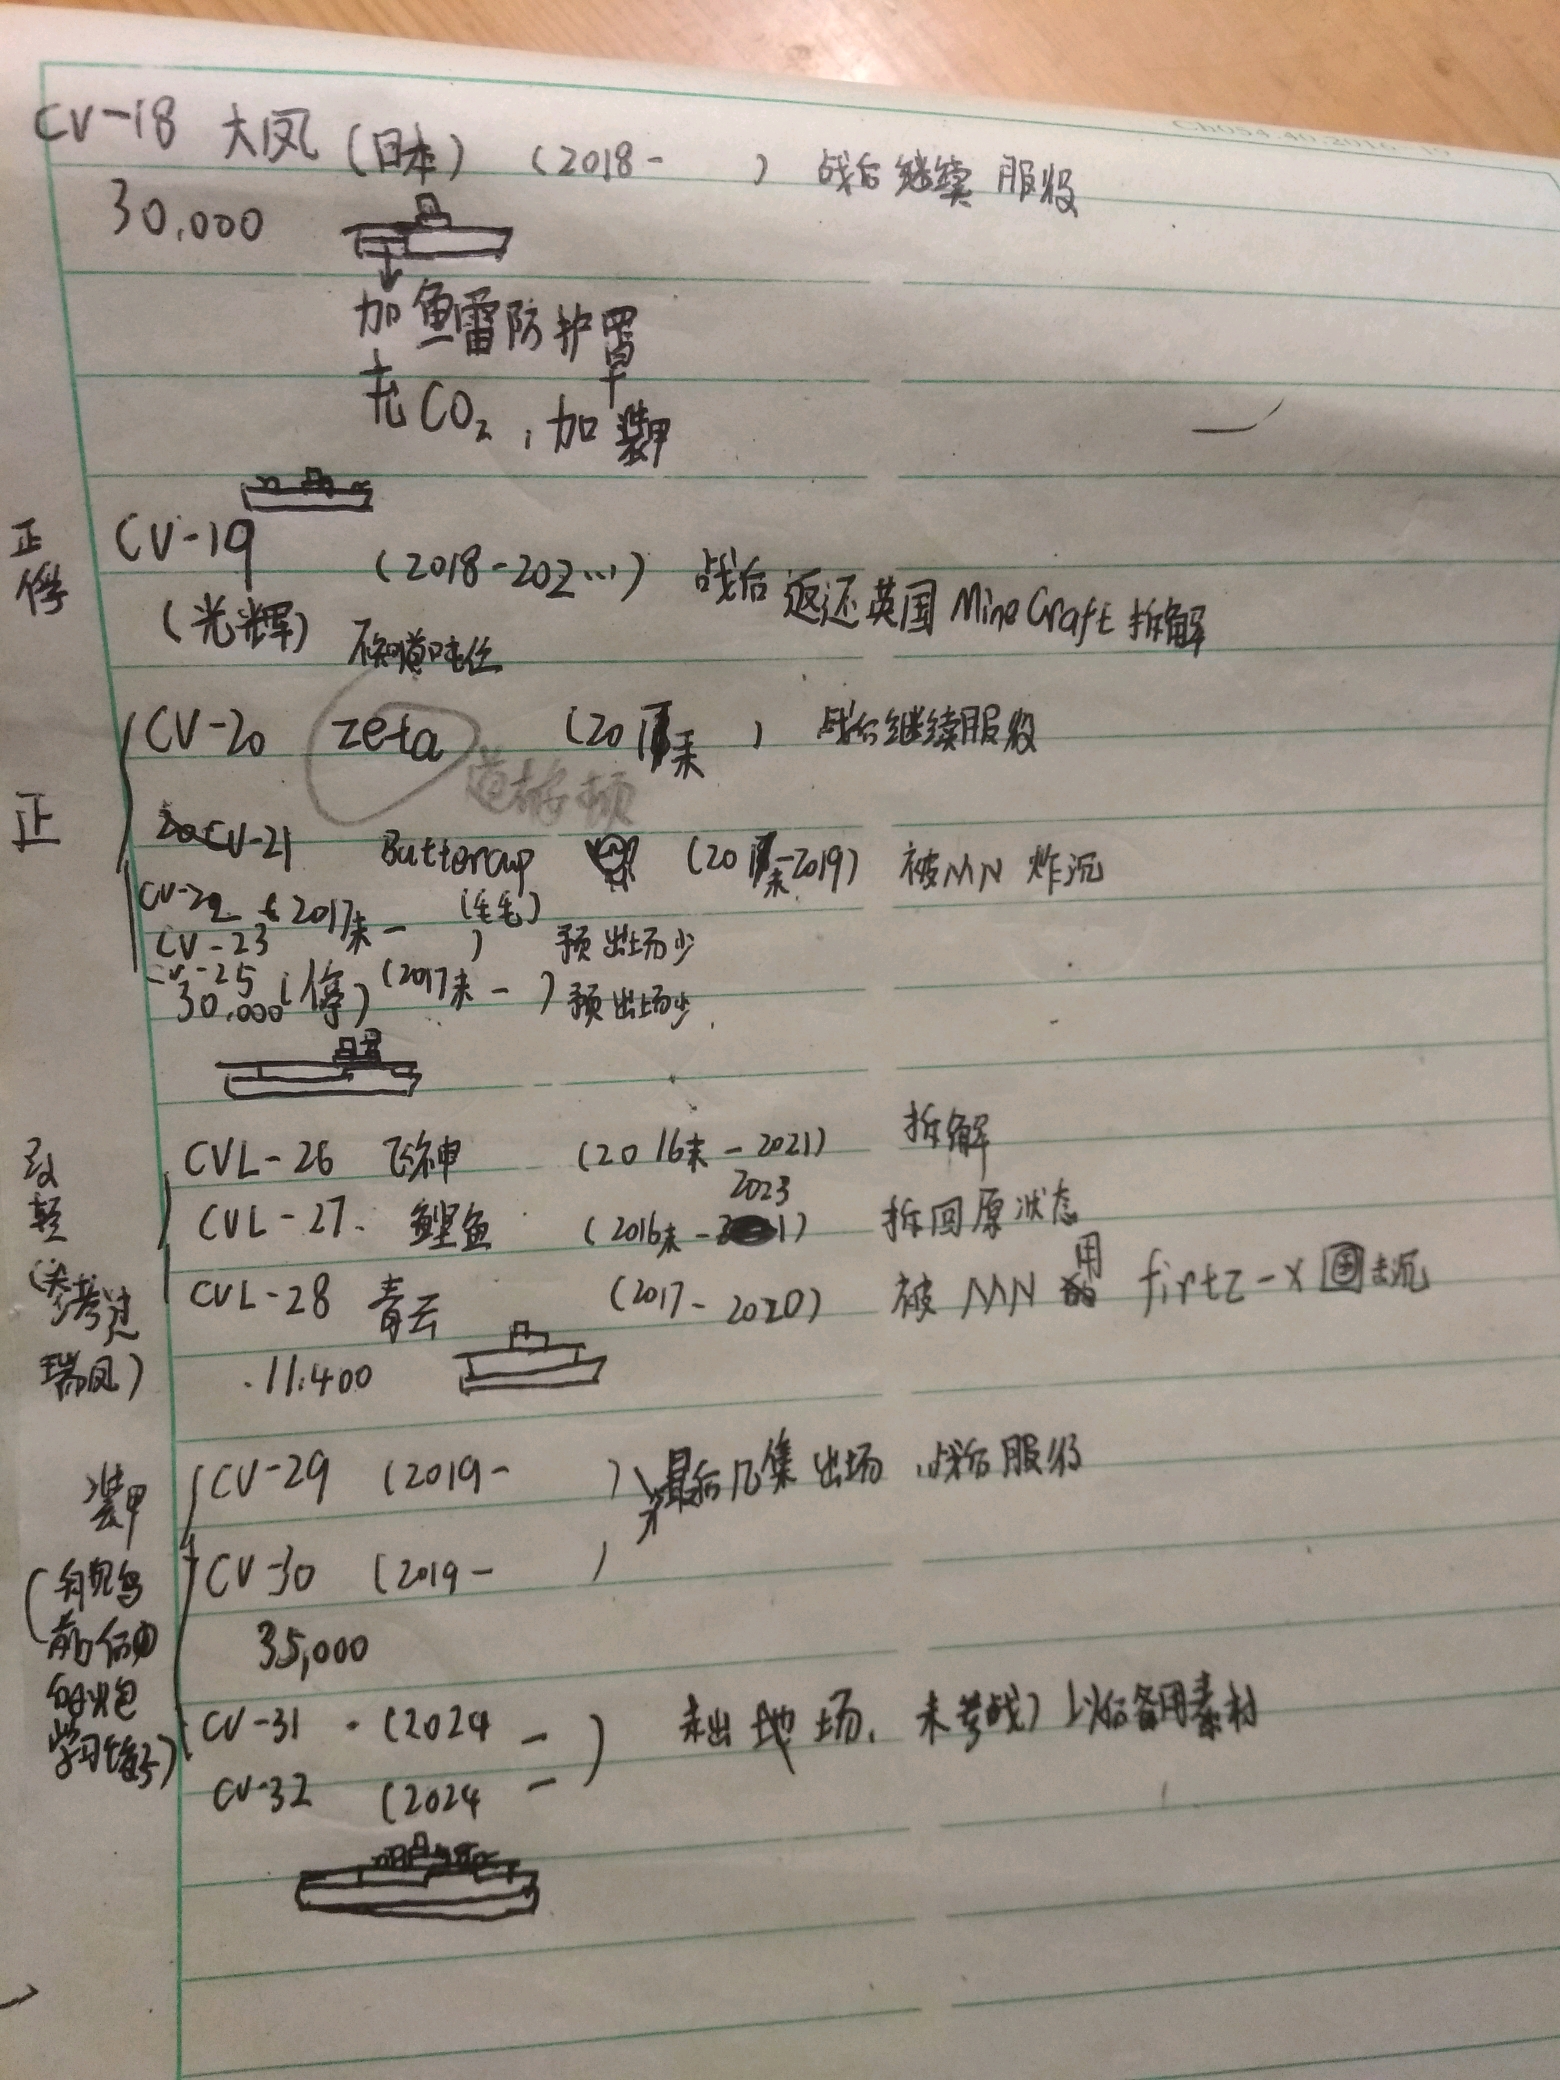 CV-18 大凤 (日本) (2018- ) 战后继续服役
30,000
加鱼雷防护罩
充CO₂,加装甲
正 CV-19 (2018-202…) 战后返还英国MineCraft拆解
(光辉) 不知道吨位
CV-20 zeta (201 末 ) 战后继续服役
正
CV-21 Buttercup (201 末-2019) 被MN炸沉
CV-22 (2017末- (毛毛)
CV-23 ) 预出场少
CV-25 (停) (2017末- ) 预出场少
30,000
CVL-26 飞神 (2016末-2021) 拆解
2023
CVL-27. 鲤鱼 (2016末- 1) 拆回原状态
轻
CVL-28 青云 (2017-2020) 被MN用 firtz-x 击沉
(参考过瑞凤)
11.400
装甲 CV-29 (2019- ) 最后几集出场,战后服役
CV-30 (2019- )
35,000
CV-31 (2024 - ) 未出地场,未参战) 以后备用素材
CV-32 (2024 -